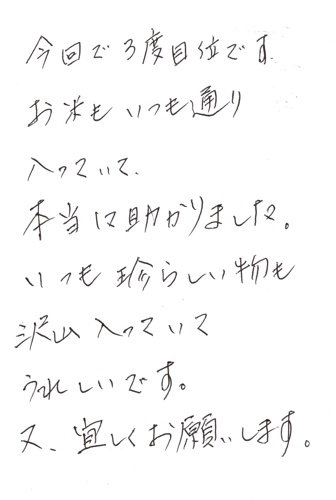 今回で3度目位です.
お米もいつも通り
入っていて、
本当に助かりました。
いつも珍らしい物も
沢山入っていて
うれしいです。
又、宜しくお願いします。